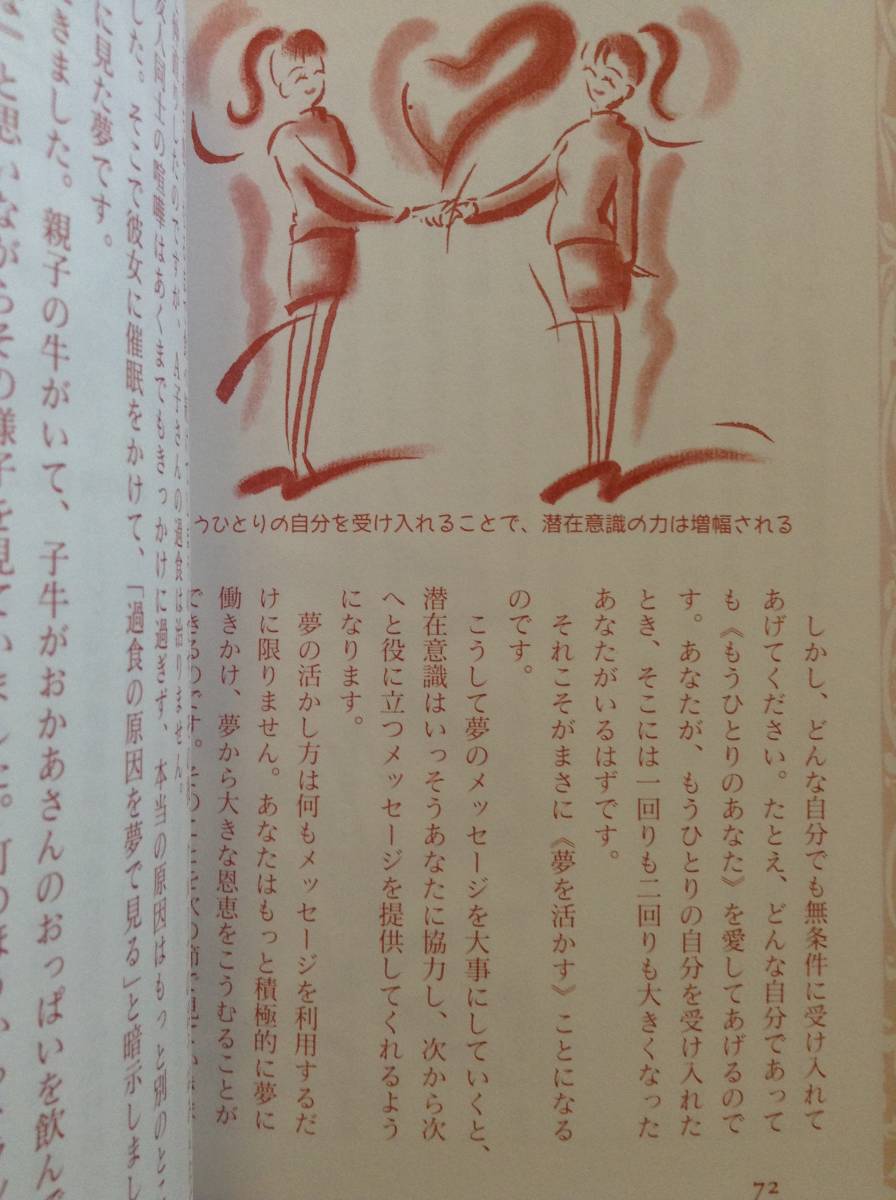 うひとりの自分を受け入れることで、潜在意識の力は増幅される
しかし、どんな自分でも無条件に受け入れて
あげてください。たとえ、どんな自分であって
も《もうひとりのあなた》を愛してあげるので
す。あなたが、もうひとりの自分を受け入れた
とき、そこには一回りも二回りも大きくなった
あなたがいるはずです。
それこそがまさに《夢を活かす》ことになる
のです。
こうして夢のメッセージを大事にしていくと、
潜在意識はいっそうあなたに協力し、次から次
へと役に立つメッセージを提供してくれるよう
になります。
夢の活かし方は何もメッセージを利用するだ
けに限りません。あなたはもっと積極的に夢に
働きかけ、夢から大きな恩恵をこうむることが
できるのです。
72
A子さんの過食は治りません。
友人同士の喧嘩はあくまでもきっかけに過ぎず、本当の原因はもっと別のとこ
した。そこで彼女に催眠をかけて、「過食の原因を夢で見る」と暗示しまし
に見た夢です。
きました。親子の牛がいて、子牛がおかあさんのおっぱいを飲んで
と思いながらその様子を見ていました。